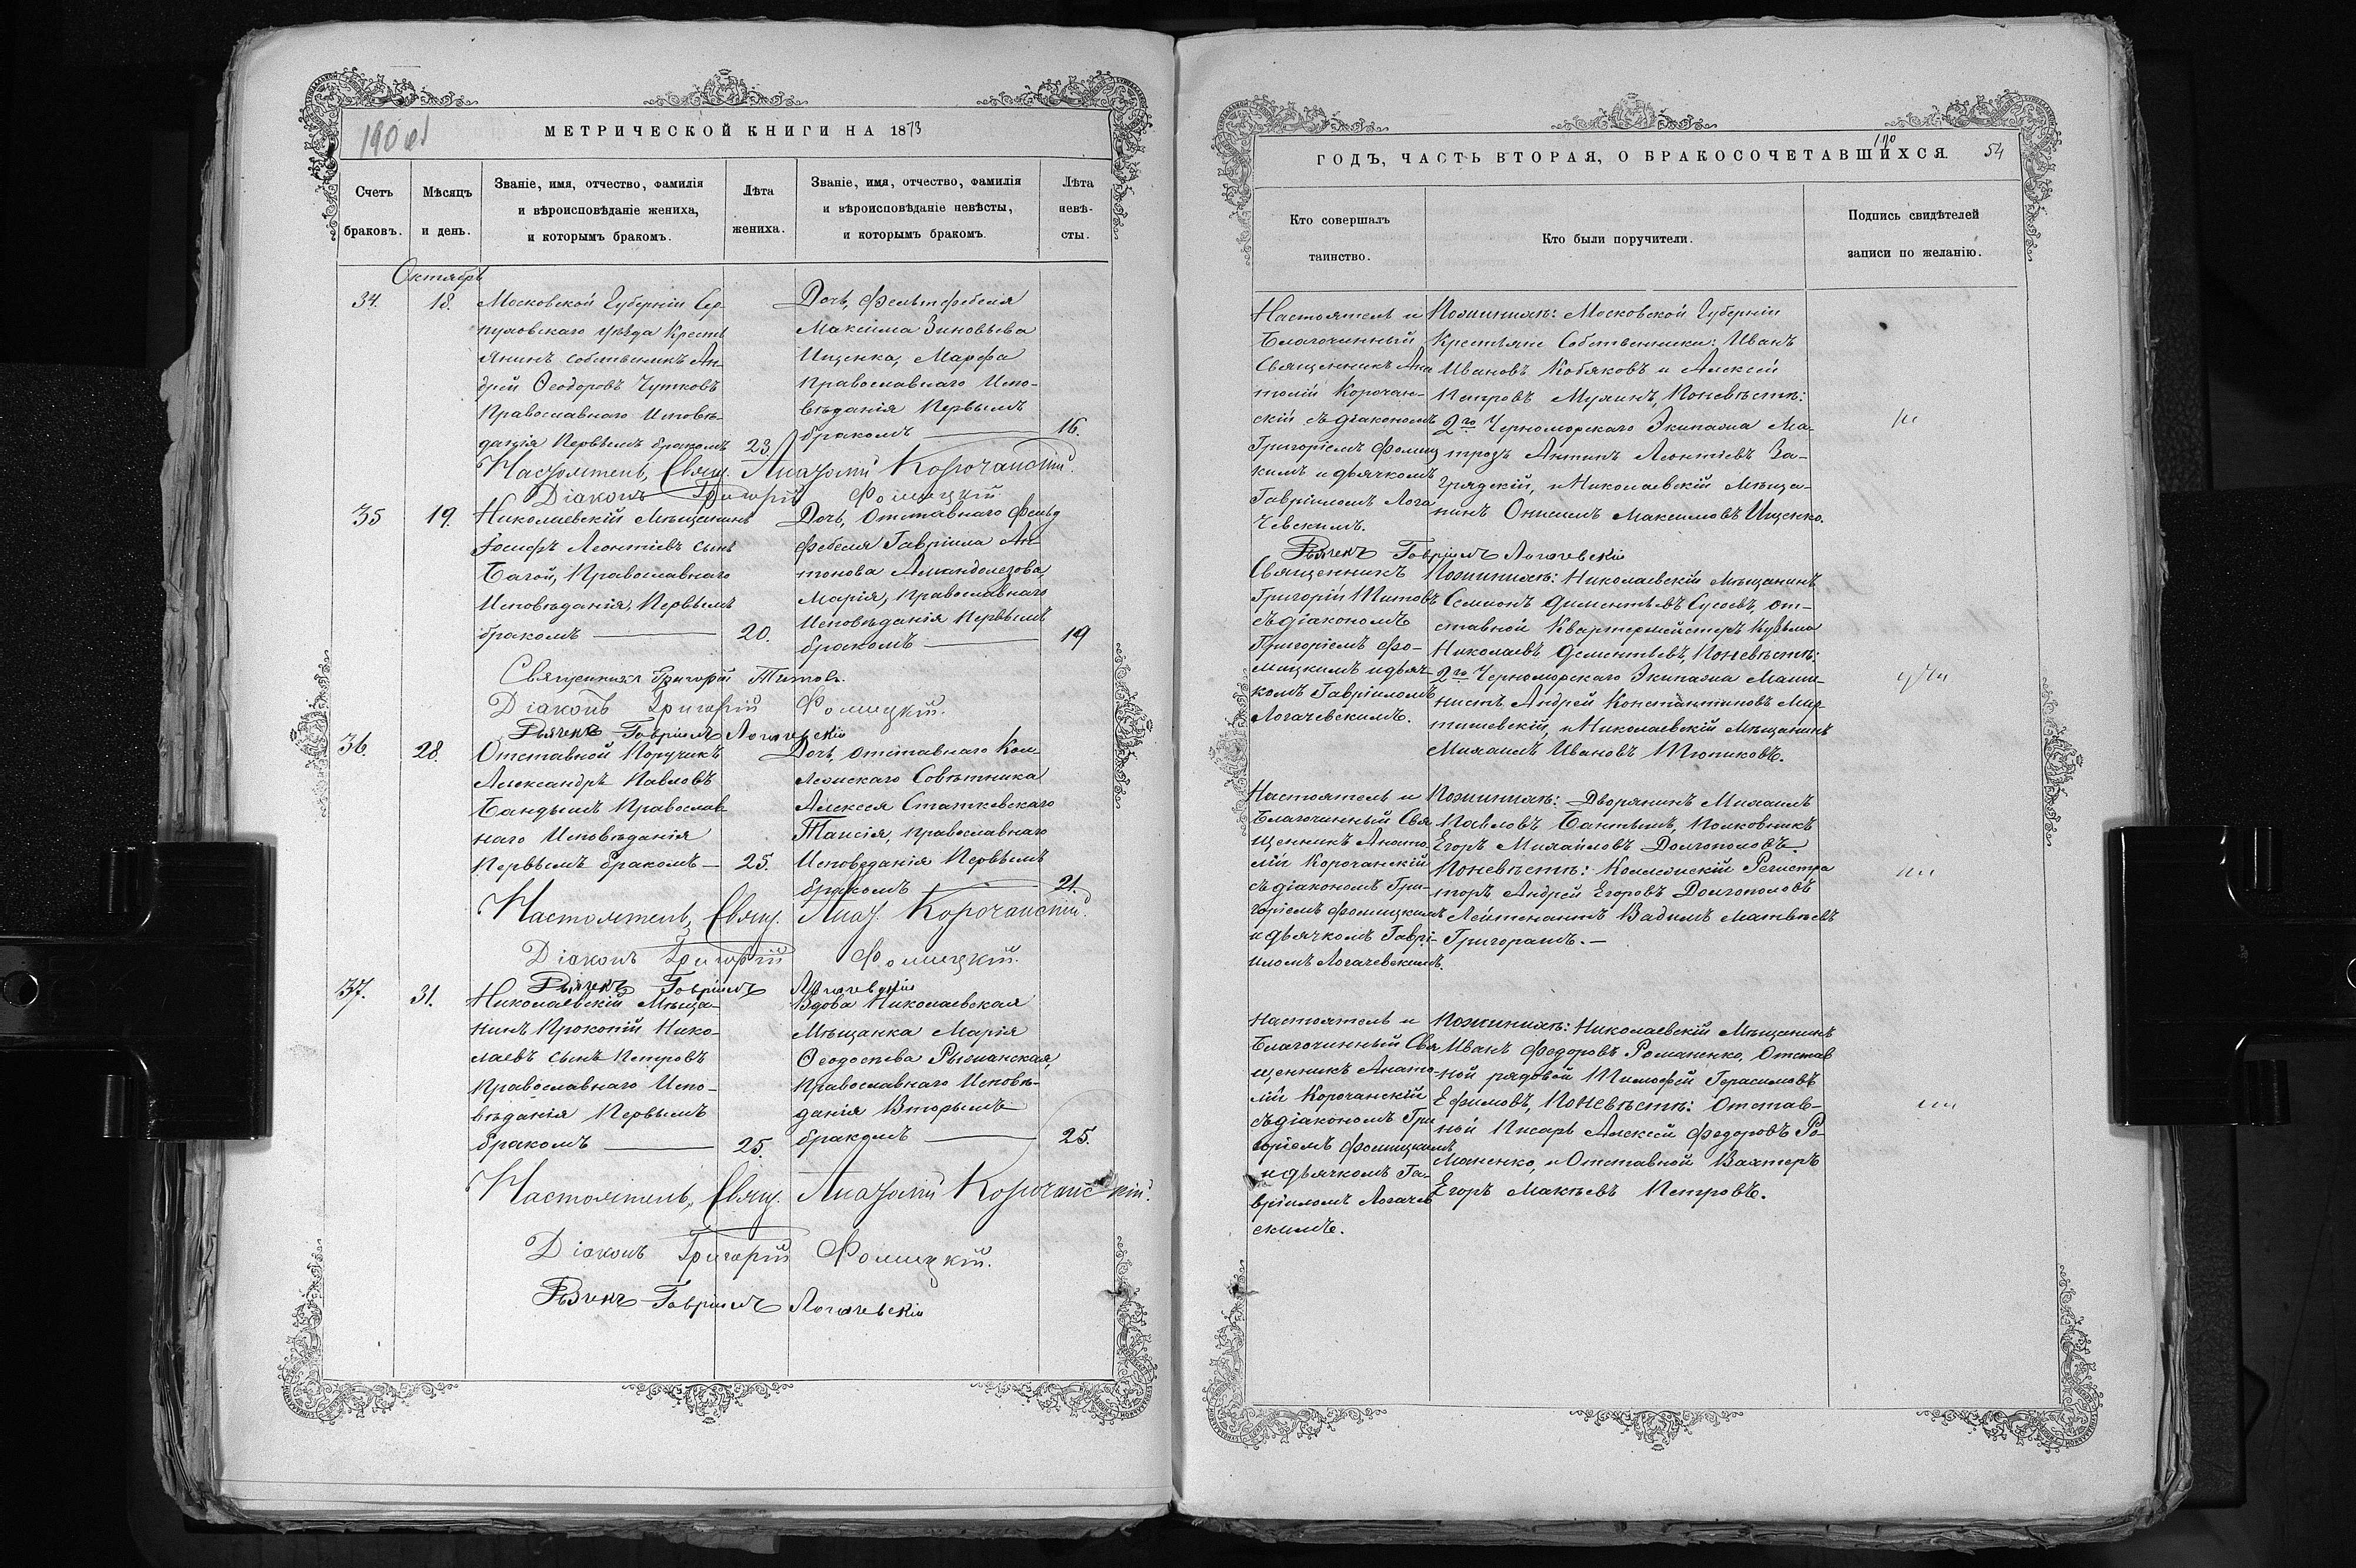 190 об
МЕТРИЧЕСКОЙ КНИГИ НА 1873
Счетъ
браковъ.
Мѣсяцъ
и день.
Званіе, имя, отчество, фамилія
и вѣроисповѣданіе жениха,
и которымъ бракомъ.
Лѣта
жениха.
Званіе, имя, отчество, фамилія
и вѣроисповѣданіе невѣсты,
и которымъ бракомъ.
Лѣта
невѣ-
сты.
Октябрь
34.
18.
Московской Губерніи Сер
пуховскаго уѣзда Кресть
янинъ собственникъ Ан-
дрей Ѳеодоровъ Чутковъ
Православнаго Исповѣ-
данія Первымъ бракомъ
23.
Дочь, Фельтфебеля
Максима Зиновьева
Ищенка, Марфа
Православнаго Испо-
вѣданія Первымъ
бракомъ
16.
Настоятель, Свящ. Анатолій Корочанскій.
Діаконъ Григорій Фомицкій
35
19.
Николаевскій Мѣщанинъ
Іосифъ Леонтіевъ сынъ
Багой, Православнаго
Исповѣданія, Первымъ
бракомъ
20.
Дочь, Отставнаго Фельд
фебеля Гавріила Ан-
тонова
Марія, Православнаго
Исповѣданія Первымъ
бракомъ
19
Священникъ Григорій Титовъ.
Діаконъ Григорій Фомицкій.
Дьячекъ Гавріилъ Логачевскій
36
28.
Отставной Поручикъ
Александръ Павловъ
Бантышъ Православ-
наго Исповѣданія
Первымъ бракомъ —
25.
Дочь, отставнаго Кол
лежскаго Совѣтника
Алексея Статкевскаго
Таисія, Православнаго
Исповеданія Первымъ
бракомъ
21.
Настоятель, Свящ. Анат. Корочанскій.
Діаконъ Григорій Фомицкій.
Дьячекъ Гавріилъ Логачевскій
37.
31.
Николаевскій Мѣща-
нинъ Прокопій Нико-
лаевъ сынъ Петровъ
Православнаго Испо-
вѣданія Первымъ
бракомъ
25.
Вдова Николаевская
Мѣщанка Марія
Ѳеодосіева
Православнаго Исповѣ-
данія Вторымъ
бракомъ
25.
Настоятель, Свящ. Анатолій Корочанскій.
Діаконъ Григорій Фомицкій.
Дьячекъ Гавріилъ Логачевскій
190
54
ГОДЪ, ЧАСТЬ ВТОРАЯ, О БРАКОСОЧЕТАВШИХСЯ
Кто совершалъ
таинство.
Кто были поручители.
Подпись свидѣтелей
записи по желанію.
Настоятель и
Благочинный
Священникъ Ана
толій Корочан-
скій съ діакономъ
Григоріемъ Фомиц
кимъ и дьячкомъ
Гавріиломъ Лога
чевскимъ.
Пожинихѣ: Московской Губерніи
Крестьяне Собственники: Иванъ
Ивановъ Кобяковъ и Алексей
Петровъ Мухинъ, Поневѣстѣ:
2го Черноморскаго Экипажа Ма-
трозъ Антипъ Леонтіевъ За-
грядскій, и Николаевскій Мѣща-
нинъ Онисимъ Максимовъ Ищенко.
Дьячекъ Гавріилъ Логачевскій
Священникъ
Григорій Титовъ
съ діакономъ
Григоріемъ Фо-
мицкимъ и дьяч-
комъ Гавріиломъ
Логачевскимъ.
Пожинихѣ: Николаевскій Мѣщанинъ
Семионъ Дементьевъ Сусоевъ, от-
ставной Квартермейстеръ Кузьма
Николаевъ Дементьевъ, Поневѣстѣ:
2го Черноморскаго Экипажа Маши-
нистъ Андрей Константиновъ
и Николаевскій Мѣщанинъ
Михаилъ Ивановъ Тюниковъ.
Настоятель и
Благочинный Свя
щенникъ Анато
лій Корочанскій
съ діакономъ Гри-
горіемъ Фомицкимъ
и дьячкомъ Гаврі-
иломъ Логачевскимъ.
Пожинихѣ: Дворянинъ Михаилъ
Павловъ Бантышъ, Полковникъ
Егоръ Михайловъ Долгополовъ
Поневѣстѣ: Коллежскій Регистра
торъ Андрей Егоровъ Долгополовъ
Лейтенантъ Вадимъ Матвѣевъ
Григорашъ. —
Настоятель и
Благочинный Свя
щенникъ Анато-
лій Корочанскій
съ діакономъ Гри
горіемъ Фомицкимъ
и дьячкомъ Га-
вріиломъ Логачев
скимъ.
Пожинихѣ: Николаевскій Мѣщанинъ
Иванъ Федоровъ Романенко, Отстав
ной рядовой Тимофей Герасимовъ
Ефимовъ, Поневѣстѣ: Отстав-
ной Писарь Алексей Федоровъ Ро-
маненко, и Отставной Вахтеръ
Егоръ Макѣевъ Петровъ.